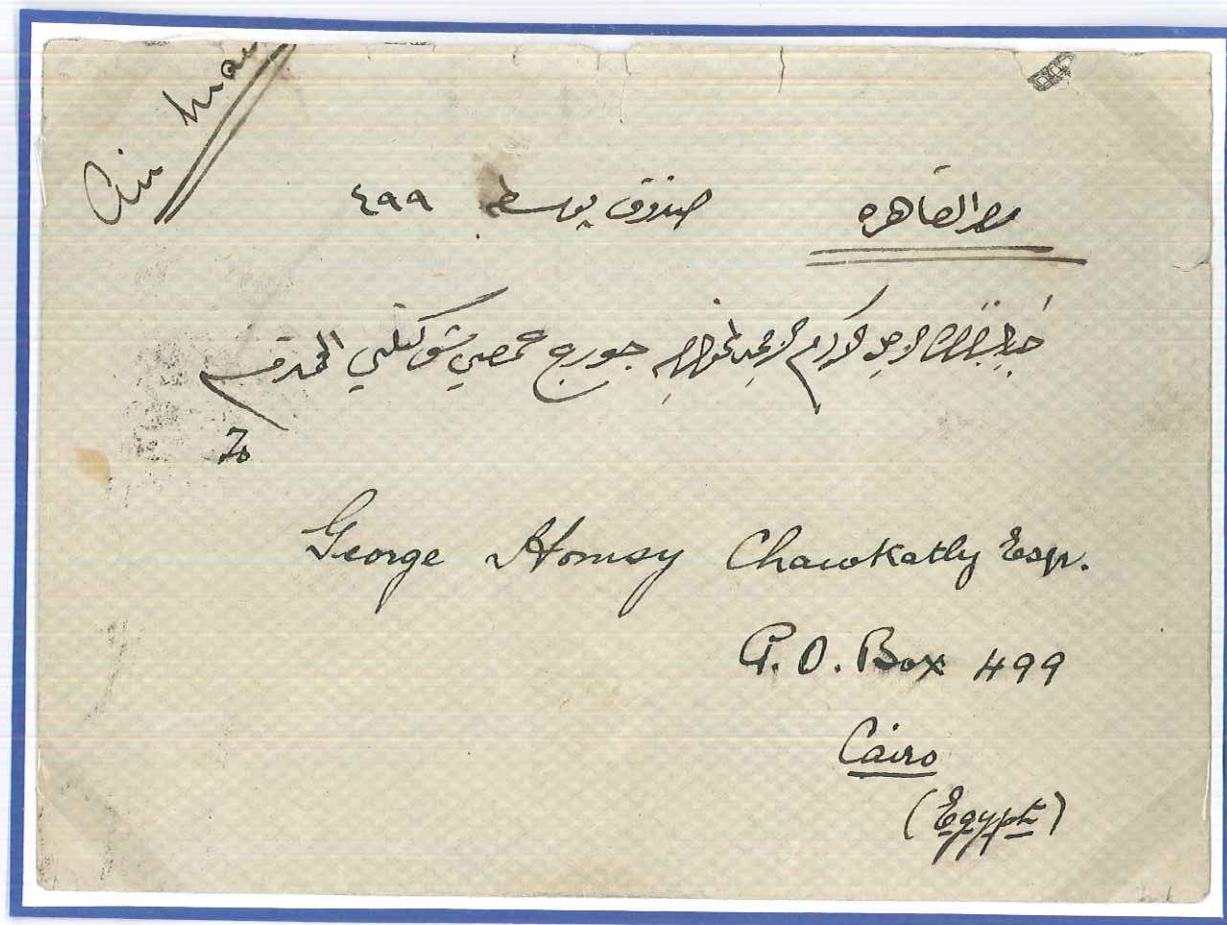 Air Mail
مصر القاهره صندوق بوسطه ٤٩٩
جناب الاجل الاكرم الامجد الخواجه جورج حمصي شوكتلي المحترم
To
George Homsy Chawkatly Esqr.
P.O. Box 499
Cairo
(Egypt)